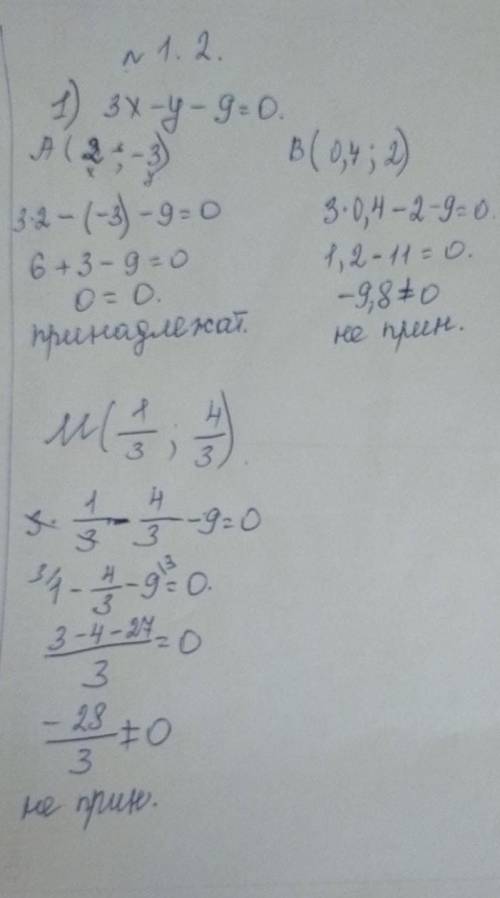 № 1. 2.
1) 3x - y - 9 = 0.
A ( 2 ; -3)
3·2 - (-3) - 9 = 0
6 + 3 - 9 = 0
0 = 0.
принадлежат.
B ( 0,4 ; 2)
3·0,4 - 2 - 9 = 0.
1,2 - 11 = 0.
-9,8 ≠ 0
не прин.
M ( 1/3 ; 4/3 ).
3 · 1/3 - 4/3 - 9 = 0
3/ 1 - 4/3 - 9 \3 = 0.
(3 - 4 - 27)/3 = 0
-28/3 ≠ 0
не прин.